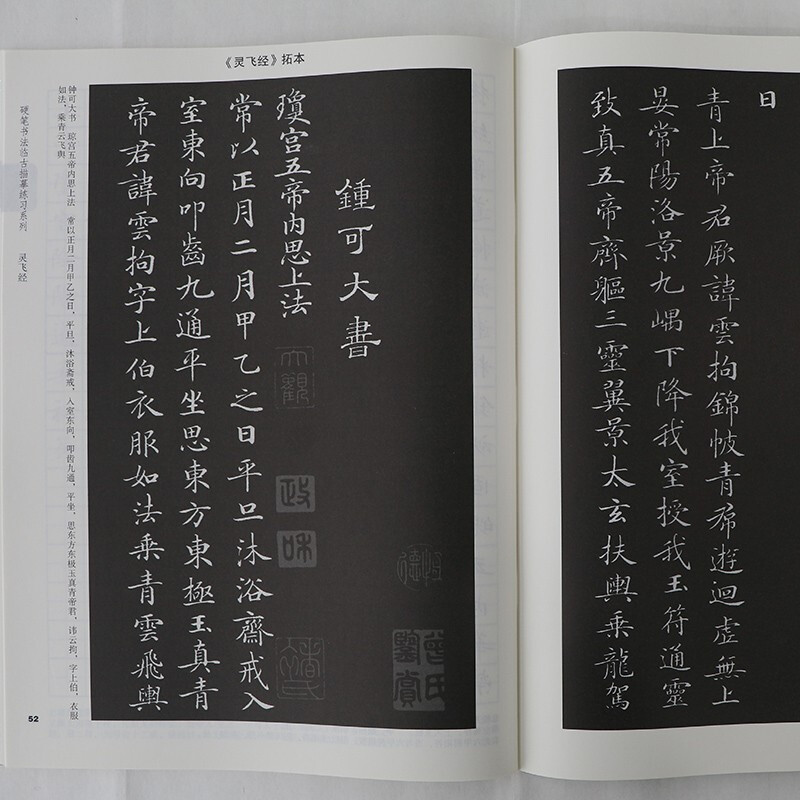 《灵飞经》拓本
鍾可大書
瓊宫五帝内思上法
常以正月二月甲乙之日平旦沐浴齋戒入
室東向叩齒九通平坐思東方東極玉真青
帝君諱雲拘字上伯衣服如法乘青雲飛輿
大觀
政和
曾氏鑒賞
钟可大书 琼宫五帝内思上法 常以正月二月甲乙之日，平旦，沐浴斋戒，入室东向，叩齿九通，平坐，思东方东极玉真青帝君，讳云拘，字上伯，衣服
如法，乘青云飞舆
硬笔书法临古描摹练习系列 灵飞经
52
日
青上帝君厥諱雲拘錦帔青帬遊迴虛無上
晏常陽洛景九嵎下降我室授我玉符通靈
致真五帝齊軀三靈翼景太玄扶輿乘龍駕